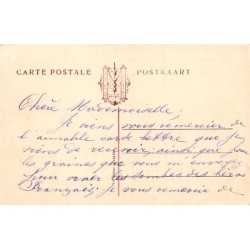 CARTE POSTALE POSTKAART
Chère Mademoiselle.
Je viens vous remercier de
l'aimable carte lettre que je
viens de recevoir ainsi que pour
les graines que vous m'envoyez
pour orner les tombes des héros
Français, je vous remercie de